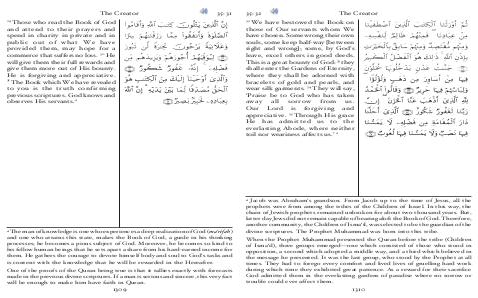 The Creator
35: 31
²⁹ Those who read the Book of God
and attend to their prayers and
spend in charity in private and in
public out of what We have
provided them, may hope for a
commerce that suffers no loss. ³⁰ He
will give them their full rewards and
give them more out of His bounty.
He is forgiving and appreciative.
³¹ The Book which We have revealed
to you is the truth confirming
previous scriptures. God knows and
observes His servants.
إِنَّ ٱلَّذِينَ يَتْلُونَ كِتَٰبَ ٱللَّهِ وَأَقَامُوا۟
ٱلصَّلَوٰةَ وَأَنفَقُوا۟ مِمَّا رَزَقْنَٰهُمْ سِرًّا
وَعَلَانِيَةً يَرْجُونَ تِجَٰرَةً لَّن تَبُورَ
لِيُوَفِّيَهُمْ أُجُورَهُمْ وَيَزِيدَهُم مِّن
فَضْلِهِۦٓ إِنَّهُۥ غَفُورٌ شَكُورٌ
وَٱلَّذِىٓ أَوْحَيْنَآ إِلَيْكَ مِنَ ٱلْكِتَٰبِ هُوَ
ٱلْحَقُّ مُصَدِّقًا لِّمَا بَيْنَ يَدَيْهِ إِنَّ ٱللَّهَ
بِعِبَادِهِۦ لَخَبِيرٌۢ بَصِيرٌ
and one who attains this state, makes the Book of God, a guide in his thinking
processes; he becomes a pious subject of God. Moreover, he comes so kind to
his fellow human beings that he sets apart a share from his hard earned income for
them. He gathers the courage to devote himself body and soul to God's tasks and
is content with the knowledge that he will be rewarded in the Hereafter.
One of the proofs of the Quran being true is that it tallies exactly with forecasts
made in the previous divine scriptures. If a man is serious and sincere, this very fact
will be enough to make him have faith in Quran.
1309
35: 32
The Creator
³² We have bestowed the Book on
those of Our servants whom We
have chosen. Some wrong their own
souls, some keep half-way [between
right and wrong]; some, by God's
leave, excel others in good deeds.
This is a great bounty of God: ³³ they
shall enter the Gardens of Eternity,
where they shall be adorned with
bracelets of gold and pearls, and
wear silk garments. ³⁴ They will say,
'Praise be to God who has taken
away all sorrow from us.
Our Lord is forgiving and
appreciative. ³⁵ Through His grace
He has admitted us to the
everlasting Abode, where neither
toil nor weariness affects us.'
ثُمَّ أَوْرَثْنَا ٱلْكِتَٰبَ ٱلَّذِينَ ٱصْطَفَيْنَا
مِنْ عِبَادِنَا فَمِنْهُمْ ظَالِمٌ لِّنَفْسِهِۦ
وَمِنْهُم مُّقْتَصِدٌ وَمِنْهُمْ سَابِقٌۢ بِٱلْخَيْرَٰتِ
بِإِذْنِ ٱللَّهِ ذَٰلِكَ هُوَ ٱلْفَضْلُ ٱلْكَبِيرُ
جَنَّٰتُ عَدْنٍ يَدْخُلُونَهَا يُحَلَّوْنَ
فِيهَا مِنْ أَسَاوِرَ مِن ذَهَبٍ وَلُؤْلُؤًا
وَلِبَاسُهُمْ فِيهَا حَرِيرٌ وَقَالُوا۟ ٱلْحَمْدُ
لِلَّهِ ٱلَّذِىٓ أَذْهَبَ عَنَّا ٱلْحَزَنَ إِنَّ
رَبَّنَا لَغَفُورٌ شَكُورٌ ٱلَّذِىٓ أَحَلَّنَا
دَارَ ٱلْمُقَامَةِ مِن فَضْلِهِۦ لَا يَمَسُّنَا
فِيهَا نَصَبٌ وَلَا يَمَسُّنَا فِيهَا لُغُوبٌ
Jacob was Abraham's grandson. From Jacob up to the time of Jesus, all the
prophets were from among the tribes of the Children of Israel. In this way, the
chain of Jewish prophets remained unbroken for about two thousand years. But,
later day Jews did not remain capable of bearing aloft the Book of God. Therefore,
another community, the Children of Ismaʻil, was selected to be the guardian of the
divine scriptures. The Prophet Muhammad was born into this tribe.
When the Prophet Muhammad presented the Quran before the tribe (Children
of Ismaʻil), three groups emerged—one which consisted of those who stood in
opposition, a second which adopted a middle way, and a third which believed in
the message he presented. It was the last group, who stood by the Prophet at all
times. They had to forego every comfort and lived lives of gruelling hard work
during which time they exhibited great patience. As a reward for their sacrifice
God admitted them to the everlasting gardens of paradise where no sorrow or
trouble could ever affect them.
1310